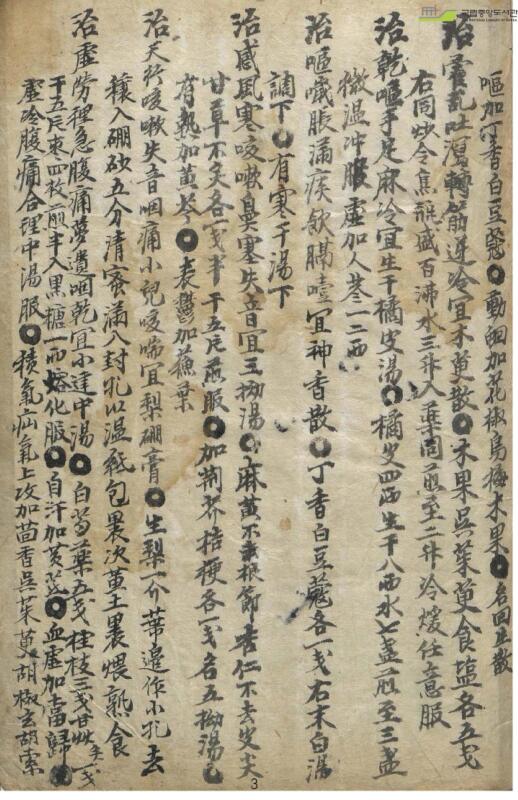 국립중앙도서관
嘔加丁香白豆蔻●動蛔加花椒烏梅木果●名回生散
治霍乱吐瀉轉筋逆冷宜木萸散●木果吳茱萸食塩各五戔
右同炒令焦瓶盛百沸水三升入藥同煎至二升冷煖任意服
治乾嘔手足麻冷宜生干橘皮湯●橘皮四両生干八両水七盞煎至三盞
温冲服虛加人參一二両
治嘔噦脹滿痰飮膈噎宜神香散●丁香白豆蔻各一戔右末白湯
調下●有寒干湯下
治感風寒咳嗽鼻塞失音宜三拗湯●麻黃不去根節杏仁不去皮尖
甘草不灸各一戔半干五片煎服●加荊芥桔梗各一戔名五拗湯●
有熱加黃芩●表鬱加蘓葉
治天行咳嗽失音咽痛小兒咳喘宜梨硼膏●生梨一介葉邉作小孔去
穰入硼砂五分清蜜滿入封孔以温紙包裹次黃土裹煨熟食
治虛勞裡急腹痛夢遺咽乾宜小建中湯●白芍藥五戔桂枝三戔甘草炙一戔
干五片枣四枚煎半入黑糖一両熔化服●自汗加黃芪●血虛加當歸●
虛冷腹痛合理中湯服●積氣疝氣上攻加茴香吳茱萸胡椒玄胡索
3